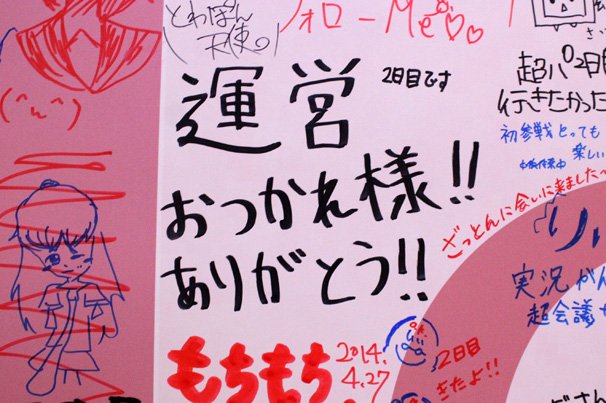 とわぽん
天使の
フォローMe♡♡
運営
2日目です
おつかれ様!!
ありがとう!!
もちもち
2014.
4.27
2日目
きたよ!!
超パ2日目
行きたかった
初参戦とっても
楽しい
ざっとんに会いに来ました〜
実況がん
超会議